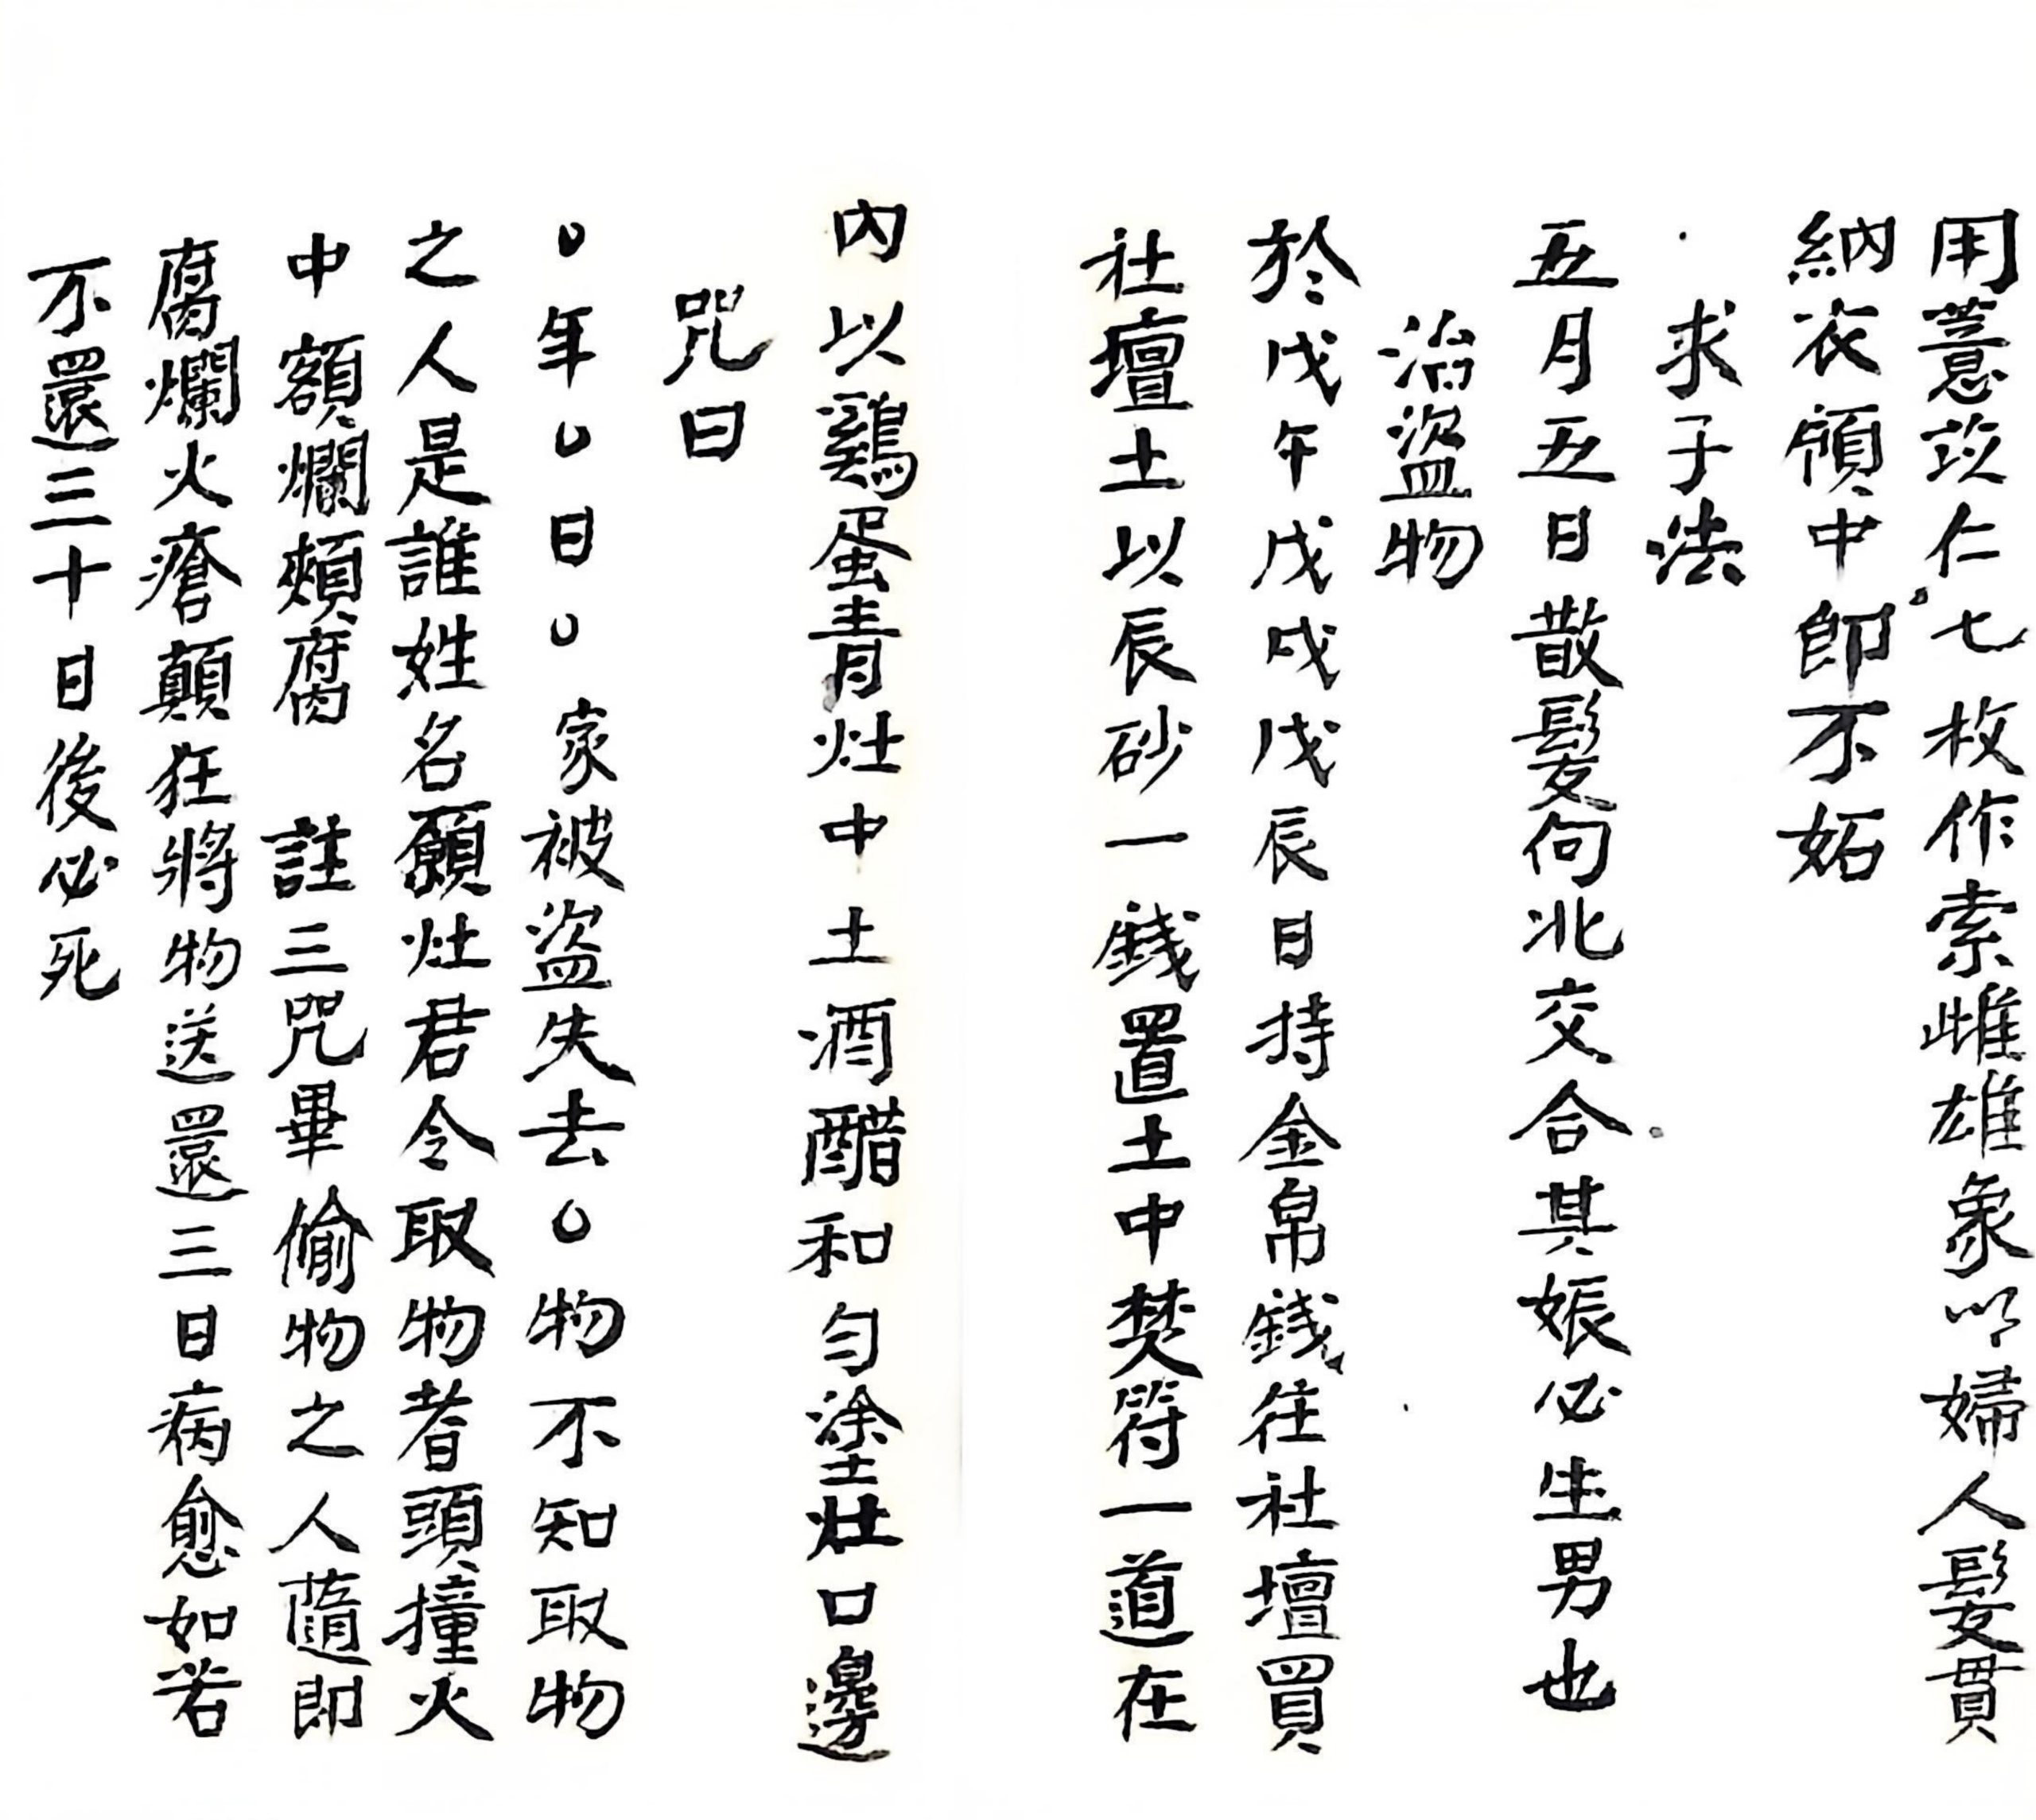 用薏苡仁七枚作索雌雄象以婦人髮貫
納衣領中即不妬
求子法
五月五日散髮向北交合其娠必生男也
治盜物
於戊午戊戌戊辰日持金帛錢往社壇買
社壇土以辰砂一錢置土中焚符一道在
內以鷄蛋青灶中土酒醋和勻塗灶口邊
咒曰
○年○日○家被盜失去○物不知取物
之人是誰姓名願灶君令取物者頭撞火
中額爛頰腐 註三咒畢偷物之人隨即
腐爛火瘡顛狂將物送還三日病愈如若
不還三十日後必死